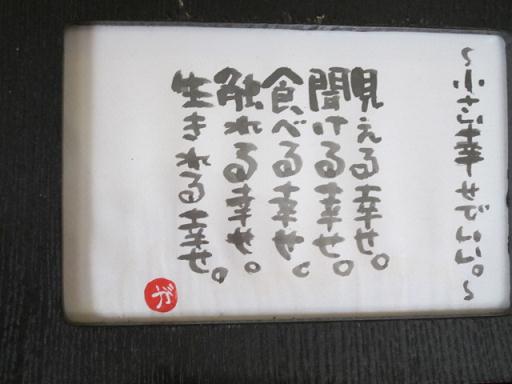 ～小さな幸せでいい。～
見える幸せ。
聞ける幸せ。
食べる幸せ。
触れる幸せ。
生きれる幸せ。